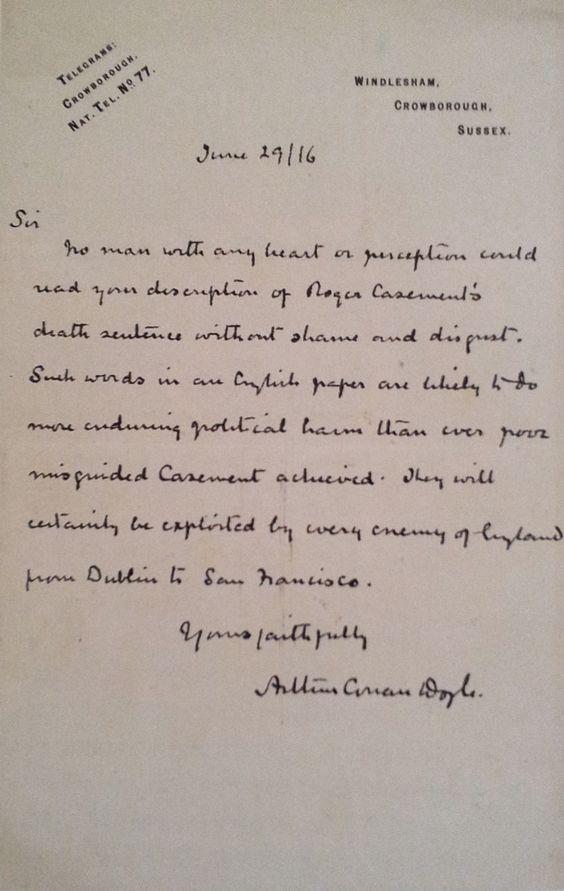 TELEGRAMS:
CROWBOROUGH.
NAT. TEL. NO. 77.
WINDLESHAM,
CROWBOROUGH,
SUSSEX.
June 29/16
Sir
No man with any heart or perception could
read your description of Roger Casement's
death sentence without shame and disgust.
Such words in an English paper are likely to do
more enduring political harm than ever poor
misguided Casement achieved. They will
certainly be exploited by every enemy of England
from Dublin to San Francisco.
Yours faithfully
Arthur Conan Doyle.